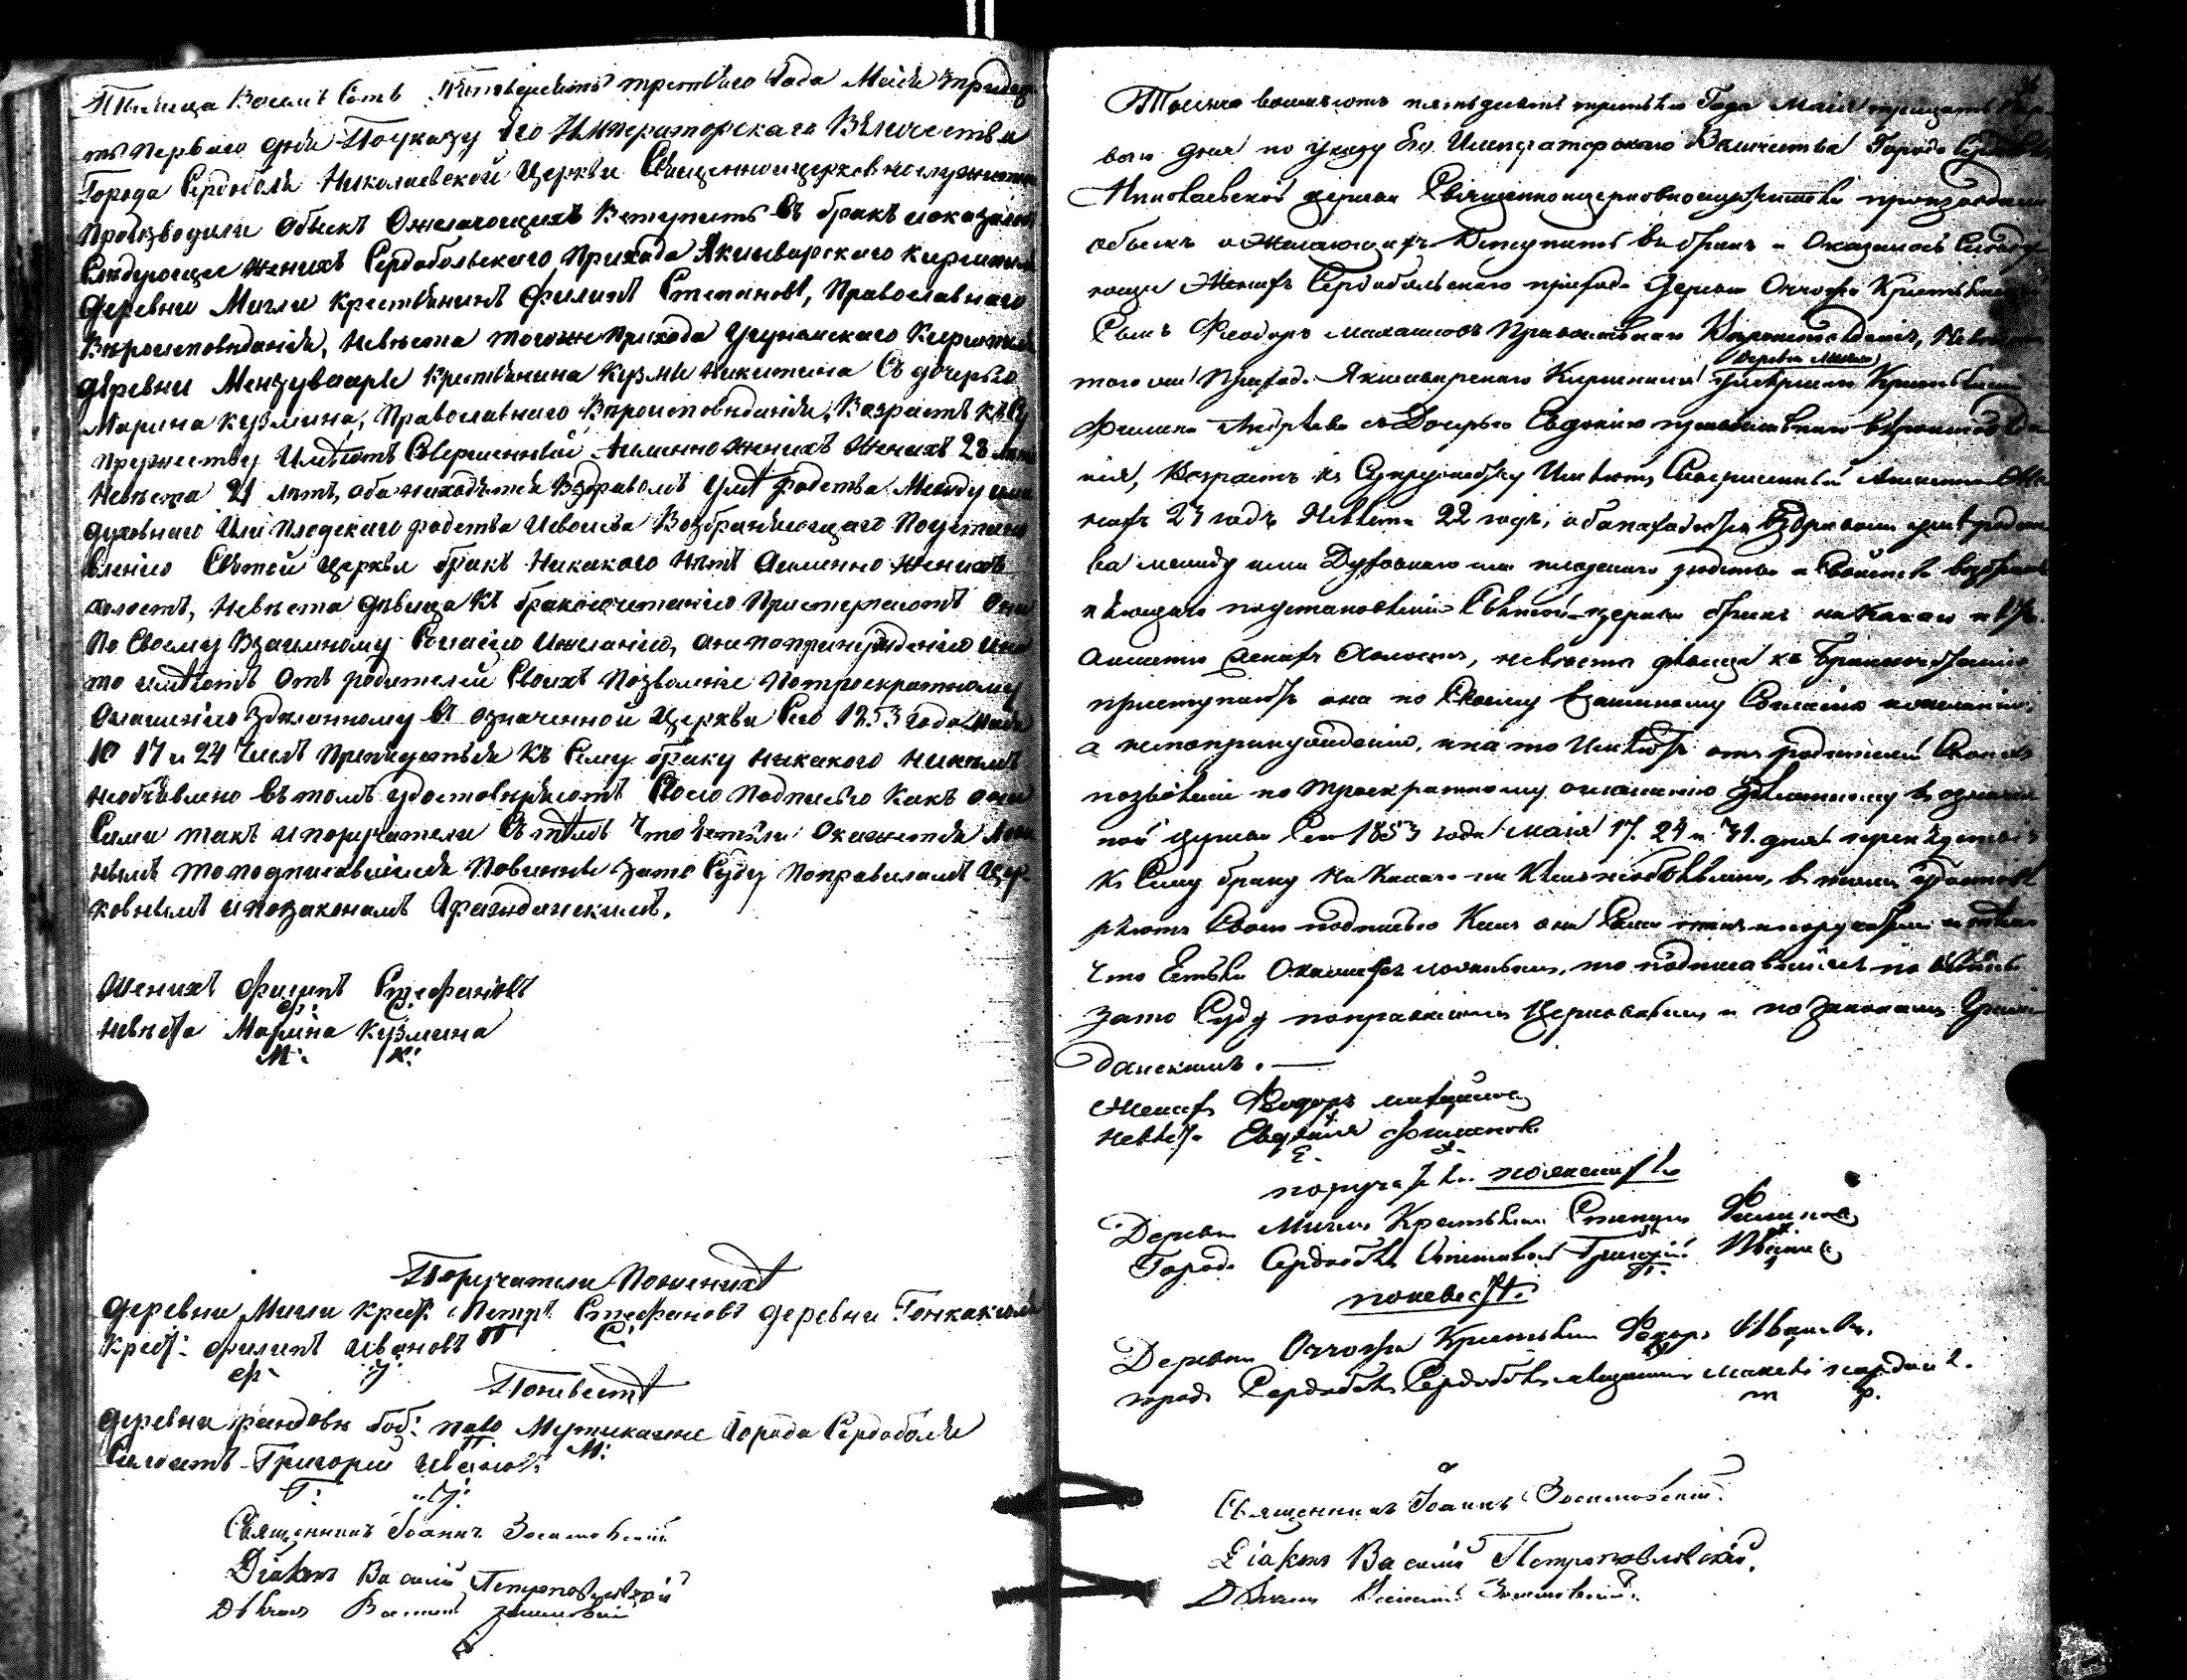 Тысяща Восемъ Сотъ Пятьдесятъ третьяго Года Маія тридца
ть перваго дня Поуказу Его Императорскаго Величества
Города Сердоболя Николаевской Церкви Священноицерковнослужители
производили Обыскъ Ожелающихъ Вступить Въ бракъ иоказалось
Слѣдующее Женихъ Сердобольскаго Прихода Якимварскаго Кирхшпиля
Деревни Мигли Крестьянинъ Филипъ Степановъ, Православнаго
Вѣроисповѣданія, Невѣста тогоже Прихода Кирхшпиля
деревни Мензуваари Крестьянина Кузмы Никитина Съ дочерью
Марина Кузмина, Православнаго Вѣроисповѣданія, Возрастъ Къ Су
пружеству Имѣютъ Совершенный Аименно женихъ женихъ 28 лѣтъ
Невѣста 21 лѣтъ, оба находятся Вздравомъ Умѣ родства Между ими
духовнаго Или Плодскаго родства Исвойства Возбраняющаго Поустано
вленію Святой Церкви бракъ Никакого Нѣтъ Аименно Женихъ
холостъ, Невѣста дѣвица Къ бракосочетанію Приступаютъ Они
По Своему Взаимному Согласію Ижеланію, анепопринужденію Ина
то имѣютъ Отъ родителей Своихъ Позволеніе Потроекратному
Оглашенію Здѣланному Въ означенной Церкви Сего 1853 года Маія
10 17 и 24 Числъ Препятствія Къ Сему браку Никакого Никѣмъ
необъявлено Въ томъ удостовѣряютъ Своею Подписью Какъ они
Сами такъ ипоручатели Съ тѣмъ Что Естьли Окажется Лож
нымъ то подписавшіися Повинны Зато Суду Поправиламъ Цер-
ковнымъ ипозаконамъ Гражданскимъ.
Женихъ Филипъ Стефановъ
Ф: С:
Невѣста Марина Кузмина
М: К:
Поручатели Поженихѣ
деревни Мигли Крест: Петръ Стефановъ деревни
П С:
Крест: Филипъ Ивановъ
Ф: И:
Поневестѣ
Деревни боб: Города Сердоболя
П: М:
Солдатъ Григорій Ивановъ
Г: И:
Священникъ Іоаннъ Зосимовскій
Діаконъ Василій Петропавловскій
Дьячокъ Зосимовскій
Тысяча восемьсотъ пятьдесятъ третьяго Года Маія тридцать пер-
ваго дня по указу Его Императорскаго Величества Города Сердоболя
Николаевской церкви Священноицерковнослужители производили
обыскъ о желающихъ Вступить въ бракъ и Оказалось Слѣду
ющее Женихъ Сердобольскаго прихода Деревни Крестьянскій
Сынъ Феодоръ Православнаго Вѣроисповѣданія, Невѣста
деревни Мигли
того же Прихода Якимварскаго Кирхшпиля Крестьянина
Филипа съ Дочерью Евдокію православнаго вѣроисповѣда
нія, Возрастъ къ Супружеству Имѣютъ Совершенный Аименно Же
нихъ 23 годъ Невѣста 22 годъ, оба находятся Вздравомъ умѣ родст
ва между ими Духовнаго или плодскаго родства и Свойства возбран
яющаго поустановленію Святой церкви бракъ никакого нѣтъ
Аименно Женихъ Холостъ, невѣста дѣвица къ бракосочетанію
приступаютъ они по Своему Взаимному Согласію ижеланію,
а непопринужденію, ина то Имѣютъ отъ родителей Своихъ
позволеніе по Троекратному оглашенію Здѣланному въ означен
ной церкви Сего 1853 года Маія 17. 24 и 31. дня препятствія
Къ Сему браку Никакого ни Кѣмъ необъявлено, въ томъ удостовѣ
ряютъ Своею подписью Какъ они Сами такъ ипоручатели съ тѣмъ
что Естьли Окажется ложнымъ, то подписавшіися повинны
зато Суду поправиламъ Церковнымъ и по законамъ Граж
данскимъ.
Женихъ Феодоръ
Невѣста Евдокія Филипова
Е. Ф.
поручатели поженихѣ
Деревни Мигли Крестьянинъ Степанъ Филиповъ
Города Сердоболя Григорій
Г.
поневестѣ
Деревни Крестьянинъ Федоръ Ивановъ.
города Сердоболя
Священникъ Іоаннъ Зосимовскій.
Діаконъ Василій Петропавловскій.
Дьячокъ Зосимовскій.